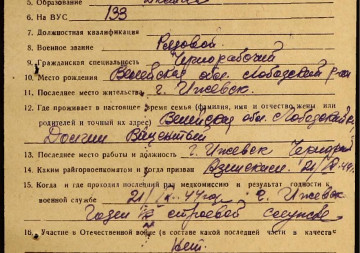 5. Образование
6. На ВУС 133
7. Должностная квалификация
8. Военное звание Рядовой
9. Гражданская специальность Чернорабочий
10. Место рождения обл. Слободской р-он
11. Последнее место жительства г. Ижевск.
12. Где проживает в настоящее время семья (фамилия, имя и отчество жены или
родителей и точный их адрес) обл. Слободской р.
13. Последнее место работы и должность г. Ижевск
14. Каким райгорвоенкоматом и когда призван
15. Когда и где проходил последний раз медкомиссию и результат годности к
военной службе г. Ижевск
Годен к строевой службе
16. Участие в Отечественной войне (в составе какой последней части в качестве
Нет.